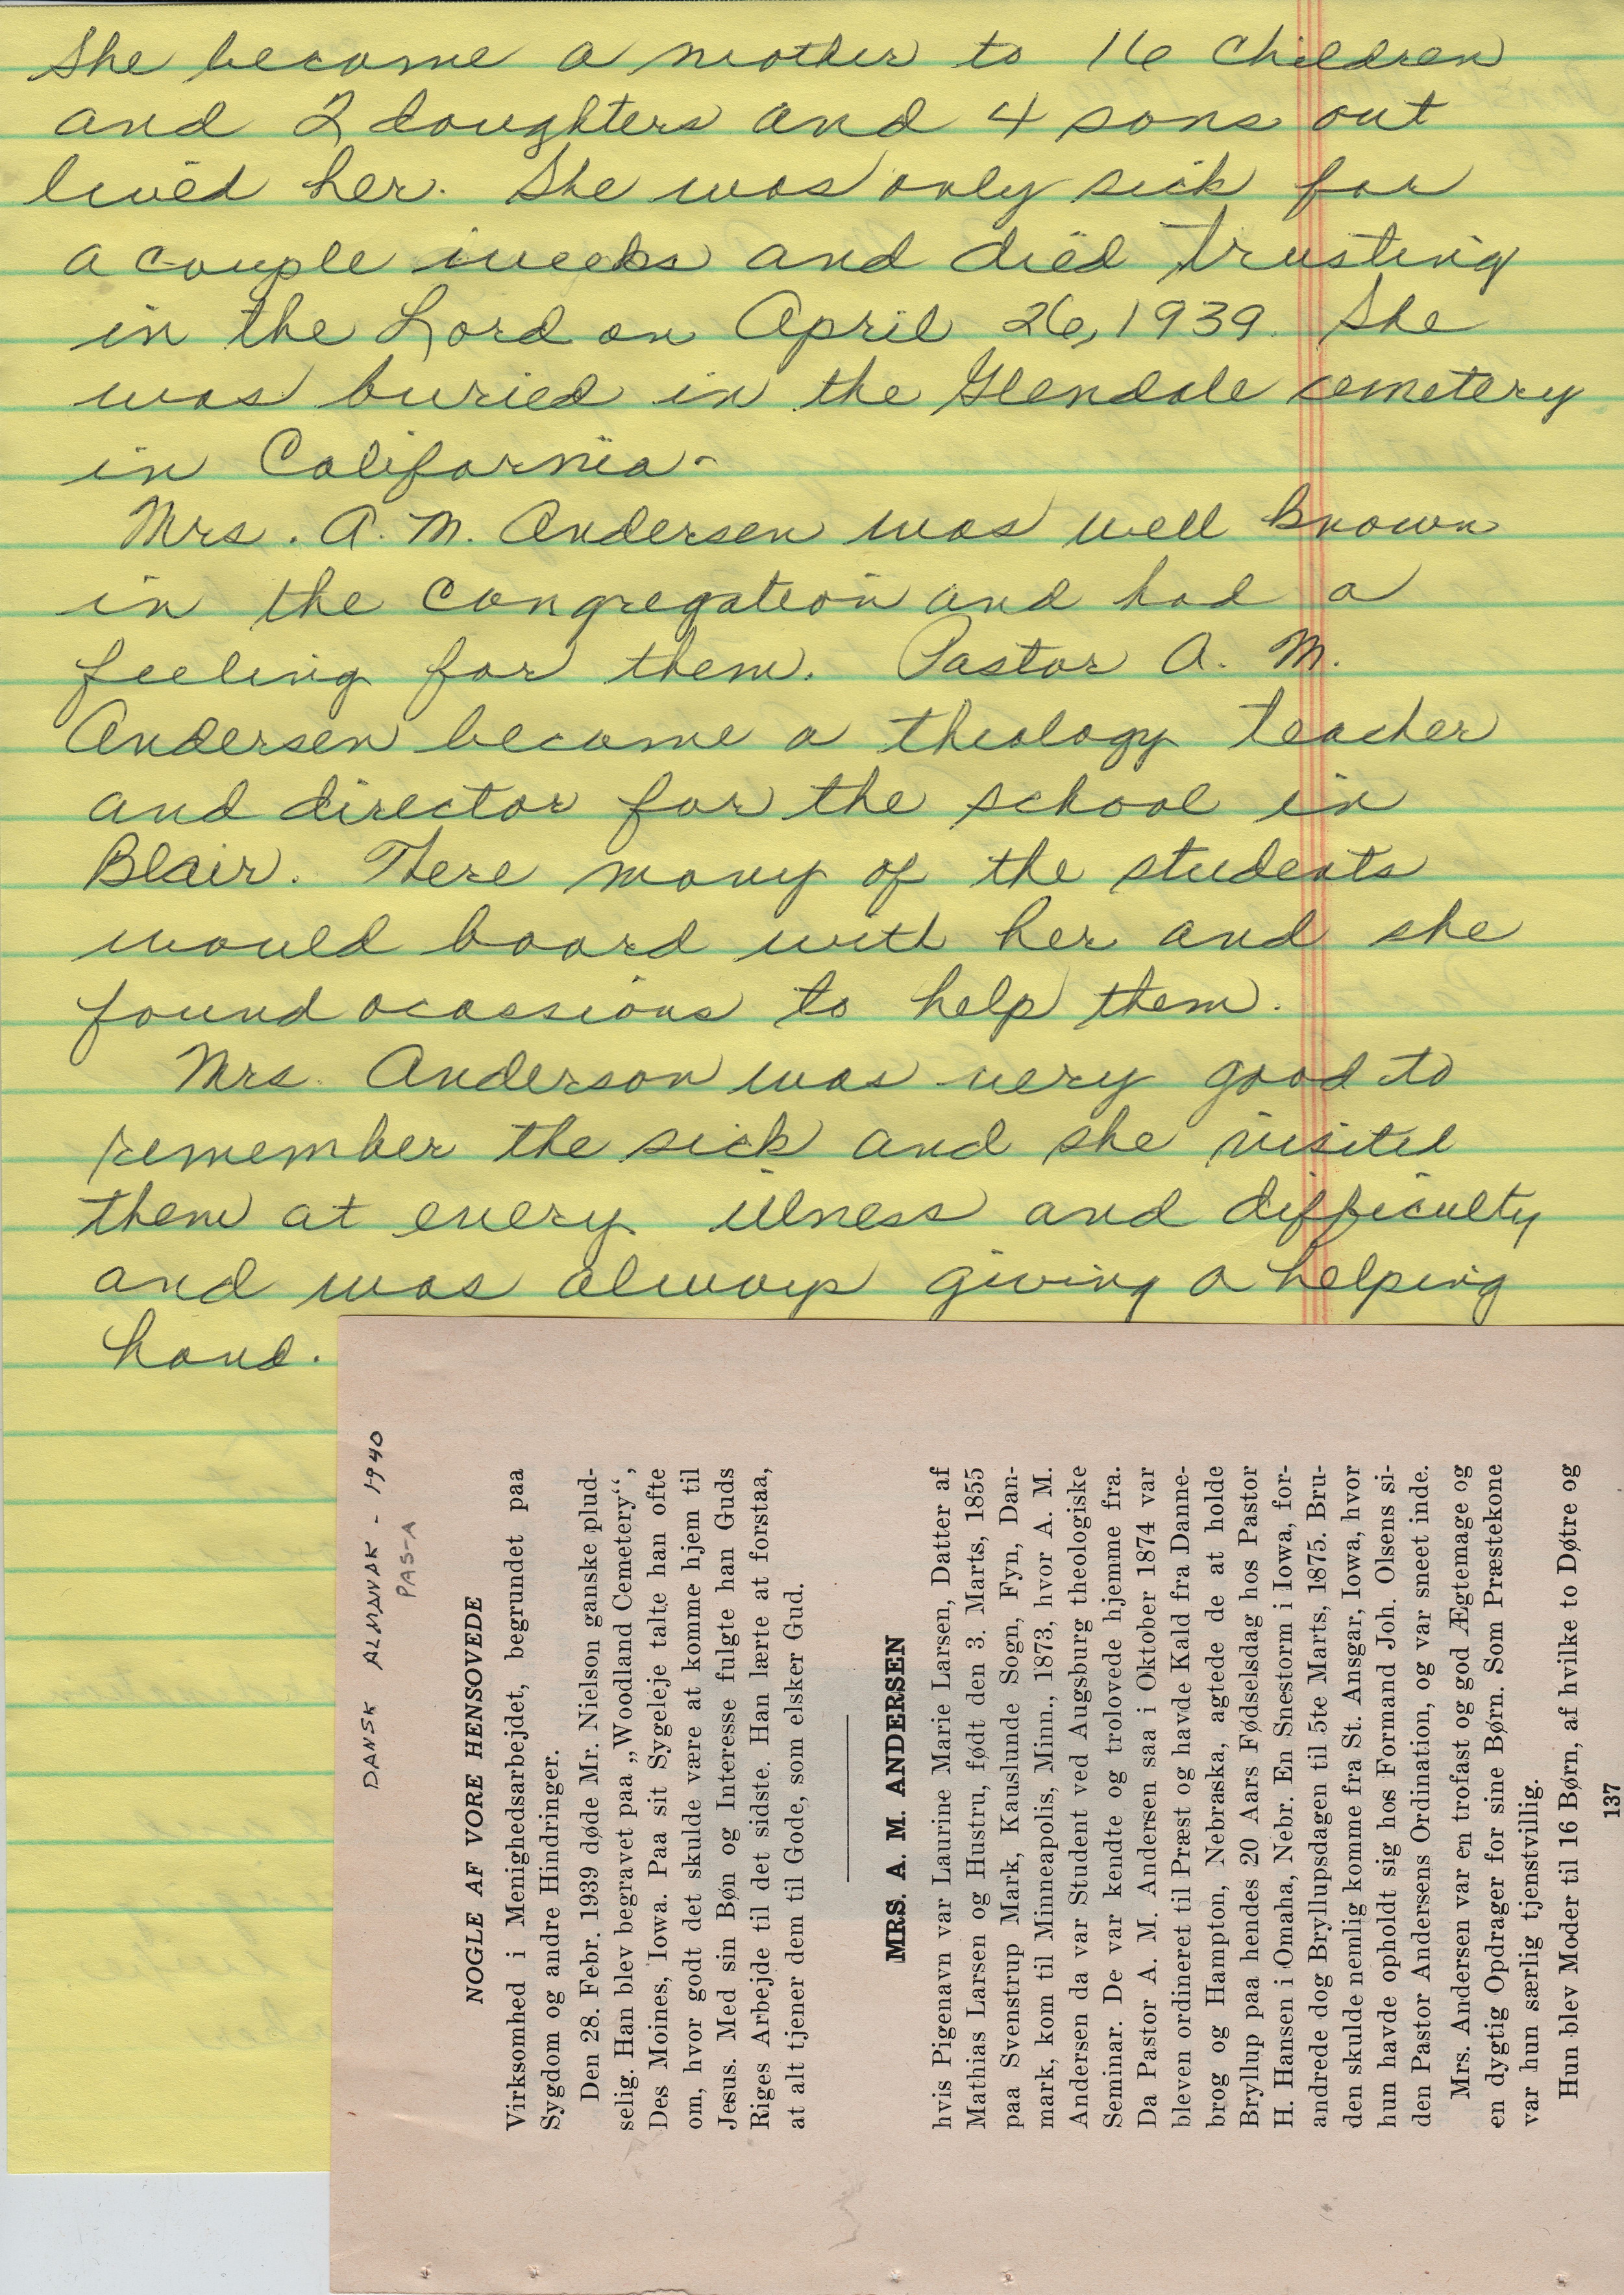 She became a mother to 16 children
and 2 doughters and 4 sons out
lived her. She was only sick for
a couple weeks and died trusting
in the Lord on April 26, 1939. She
was buried in the Glendale cemetery
in California.
Mrs. A. M. Andersen was well known
in the congregation and had a
feeling for them. Pastor A. M.
Andersen became a theology teacher
and director for the school in
Blair. There many of the students
would board with her and she
found ocassions to help them.
Mrs. Anderson was very good to
remember the sick and she visited
them at every illness and difficulty
and was always giving a helping
hand.
DANSK ALMANAK - 1940
PAS-A
NOGLE AF VORE HENSOVEDE
Virksomhed i Menighedsarbejdet, begrundet paa
Sygdom og andre Hindringer.
Den 28. Febr. 1939 døde Mr. Nielson ganske plud-
selig. Han blev begravet paa „Woodland Cemetery“,
Des Moines, Iowa. Paa sit Sygeleje talte han ofte
om, hvor godt det skulde være at komme hjem til
Jesus. Med sin Bøn og Interesse fulgte han Guds
Riges Arbejde til det sidste. Han lærte at forstaa,
at alt tjener dem til Gode, som elsker Gud.
MRS. A. M. ANDERSEN
hvis Pigenavn var Laurine Marie Larsen, Datter af
Mathias Larsen og Hustru, født den 3. Marts, 1855
paa Svenstrup Mark, Kauslunde Sogn, Fyn, Dan-
mark, kom til Minneapolis, Minn., 1873, hvor A. M.
Andersen da var Student ved Augsburg theologiske
Seminar. De var kendte og trolovede hjemme fra.
Da Pastor A. M. Andersen saa i Oktober 1874 var
bleven ordineret til Præst og havde Kald fra Danne-
brog og Hampton, Nebraska, agtede de at holde
Bryllup paa hendes 20 Aars Fødselsdag hos Pastor
H. Hansen i Omaha, Nebr. En Snestorm i Iowa, for-
andrede dog Bryllupsdagen til 5te Marts, 1875. Bru-
den skulde nemlig komme fra St. Ansgar, Iowa, hvor
hun havde opholdt sig hos Formand Joh. Olsens si-
den Pastor Andersens Ordination, og var sneet inde.
Mrs. Andersen var en trofast og god Ægtemage og
en dygtig Opdrager for sine Børn. Som Præstekone
var hun særlig tjenstvillig.
Hun blev Moder til 16 Børn, af hvilke to Døtre og
137